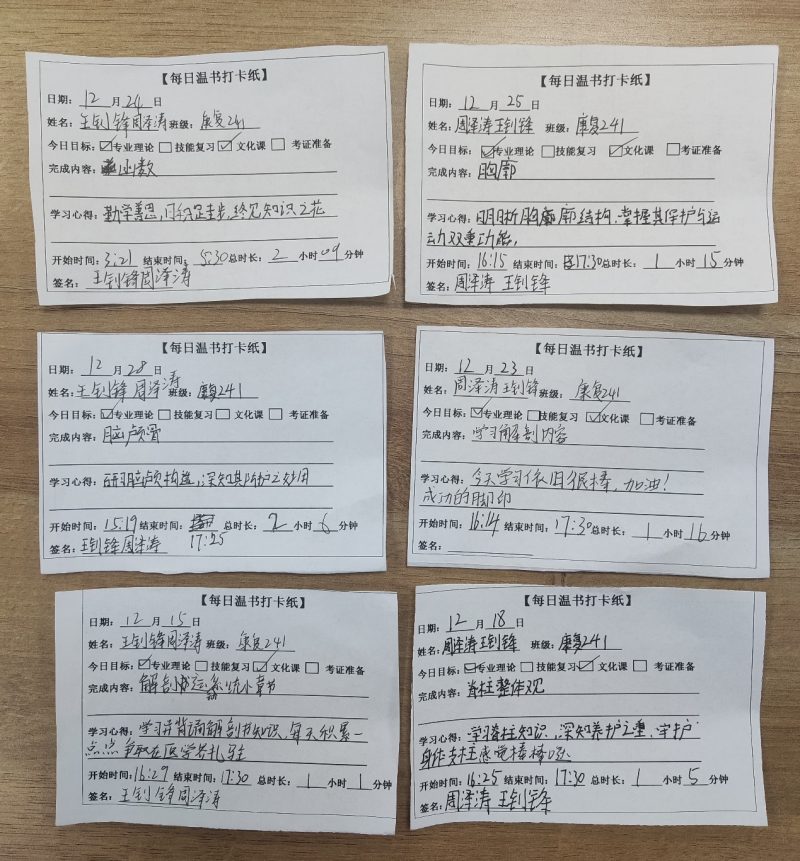 【每日温书打卡纸】
日期：12月24日
姓名：王钊锋周泽涛 班级：康复241
今日目标：☑专业理论 □技能复习 ☑文化课 □ 考证准备
完成内容：业数
学习心得：勤学善思，日积跬步，终见知识之花
开始时间：3:21 结束时间：5:30 总时长：2小时09分钟
签名：王钊锋周泽涛
【每日温书打卡纸】
日期：12月25日
姓名：周泽涛王钊锋 班级：康复241
今日目标：☑专业理论 □技能复习 ☑文化课 □考证准备
完成内容：胸廓
学习心得：明晰胸廓结构，掌握其保护与运
动双重功能，
开始时间：16:15 结束时间：17:30 总时长：1小时15分钟
签名：周泽涛 王钊锋
【每日温书打卡纸】
日期：12月28日
姓名：王钊锋 周泽涛 班级：康复241
今日目标：☑专业理论 □技能复习 □文化课 □ 考证准备
完成内容：脑颅骨
学习心得：研习脑颅构造，深知其防护之妙用
开始时间：15:19 结束时间：17:25 总时长：2小时6分钟
签名：王钊锋周泽涛
【每日温书打卡纸】
日期：12月23日
姓名：周泽涛王钊锋 康复241
今日目标：☑专业理论 □技能复习 ☑文化课 □考证准备
完成内容：学习解剖内容
学习心得：今天学习依旧很棒，加油！
成功的脚印
开始时间：16:14 结束时间：17:30 总时长：1小时16分钟
签名：
【每日温书打卡纸】
日期：12月15日
姓名：王钊锋周泽涛 班级：康复241
今日目标：☑专业理论 □技能复习 ☑文化课 □ 考证准备
完成内容：解剖书运动系统小章节
学习心得：学习并背诵解剖书知识，每天积累一
点点 争取在医学名扎马生
开始时间：16:29 结束时间：17:30 总时长：1小时1分钟
签名：王钊锋周泽涛
【每日温书打卡纸】
日期：12月18日
姓名：周泽涛王钊锋 班级：康复241
今日目标：☑专业理论 □技能复习 ☑文化课 □ 考证准备
完成内容：脊柱整体观
学习心得：学习脊柱知识，深知养护之重，守护
身体支柱感觉棒棒哒
开始时间：16:25 结束时间：17:30 总时长：1小时5分钟
签名：周泽涛 王钊锋